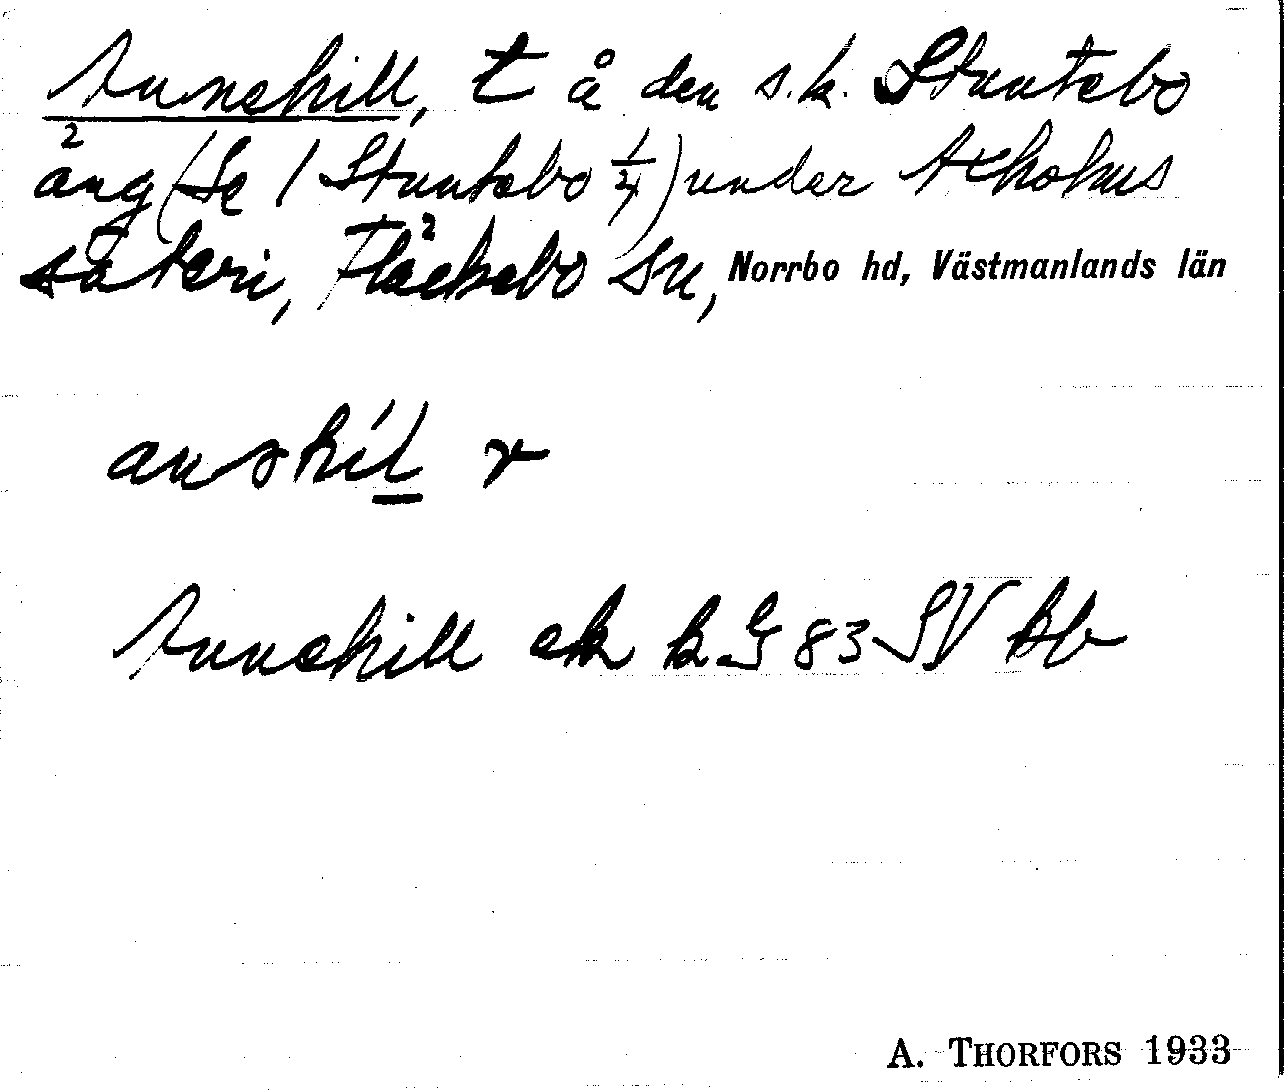 Annekill, t å den s.k. Stuntebo
äng (Se 1 Stuntebo 1/4) under Ekohus
säteri, Fläckebo sn, Norrbo hd, Västmanlands län
anskil
Annekill ek
83 SV
A. THORFORS 1933